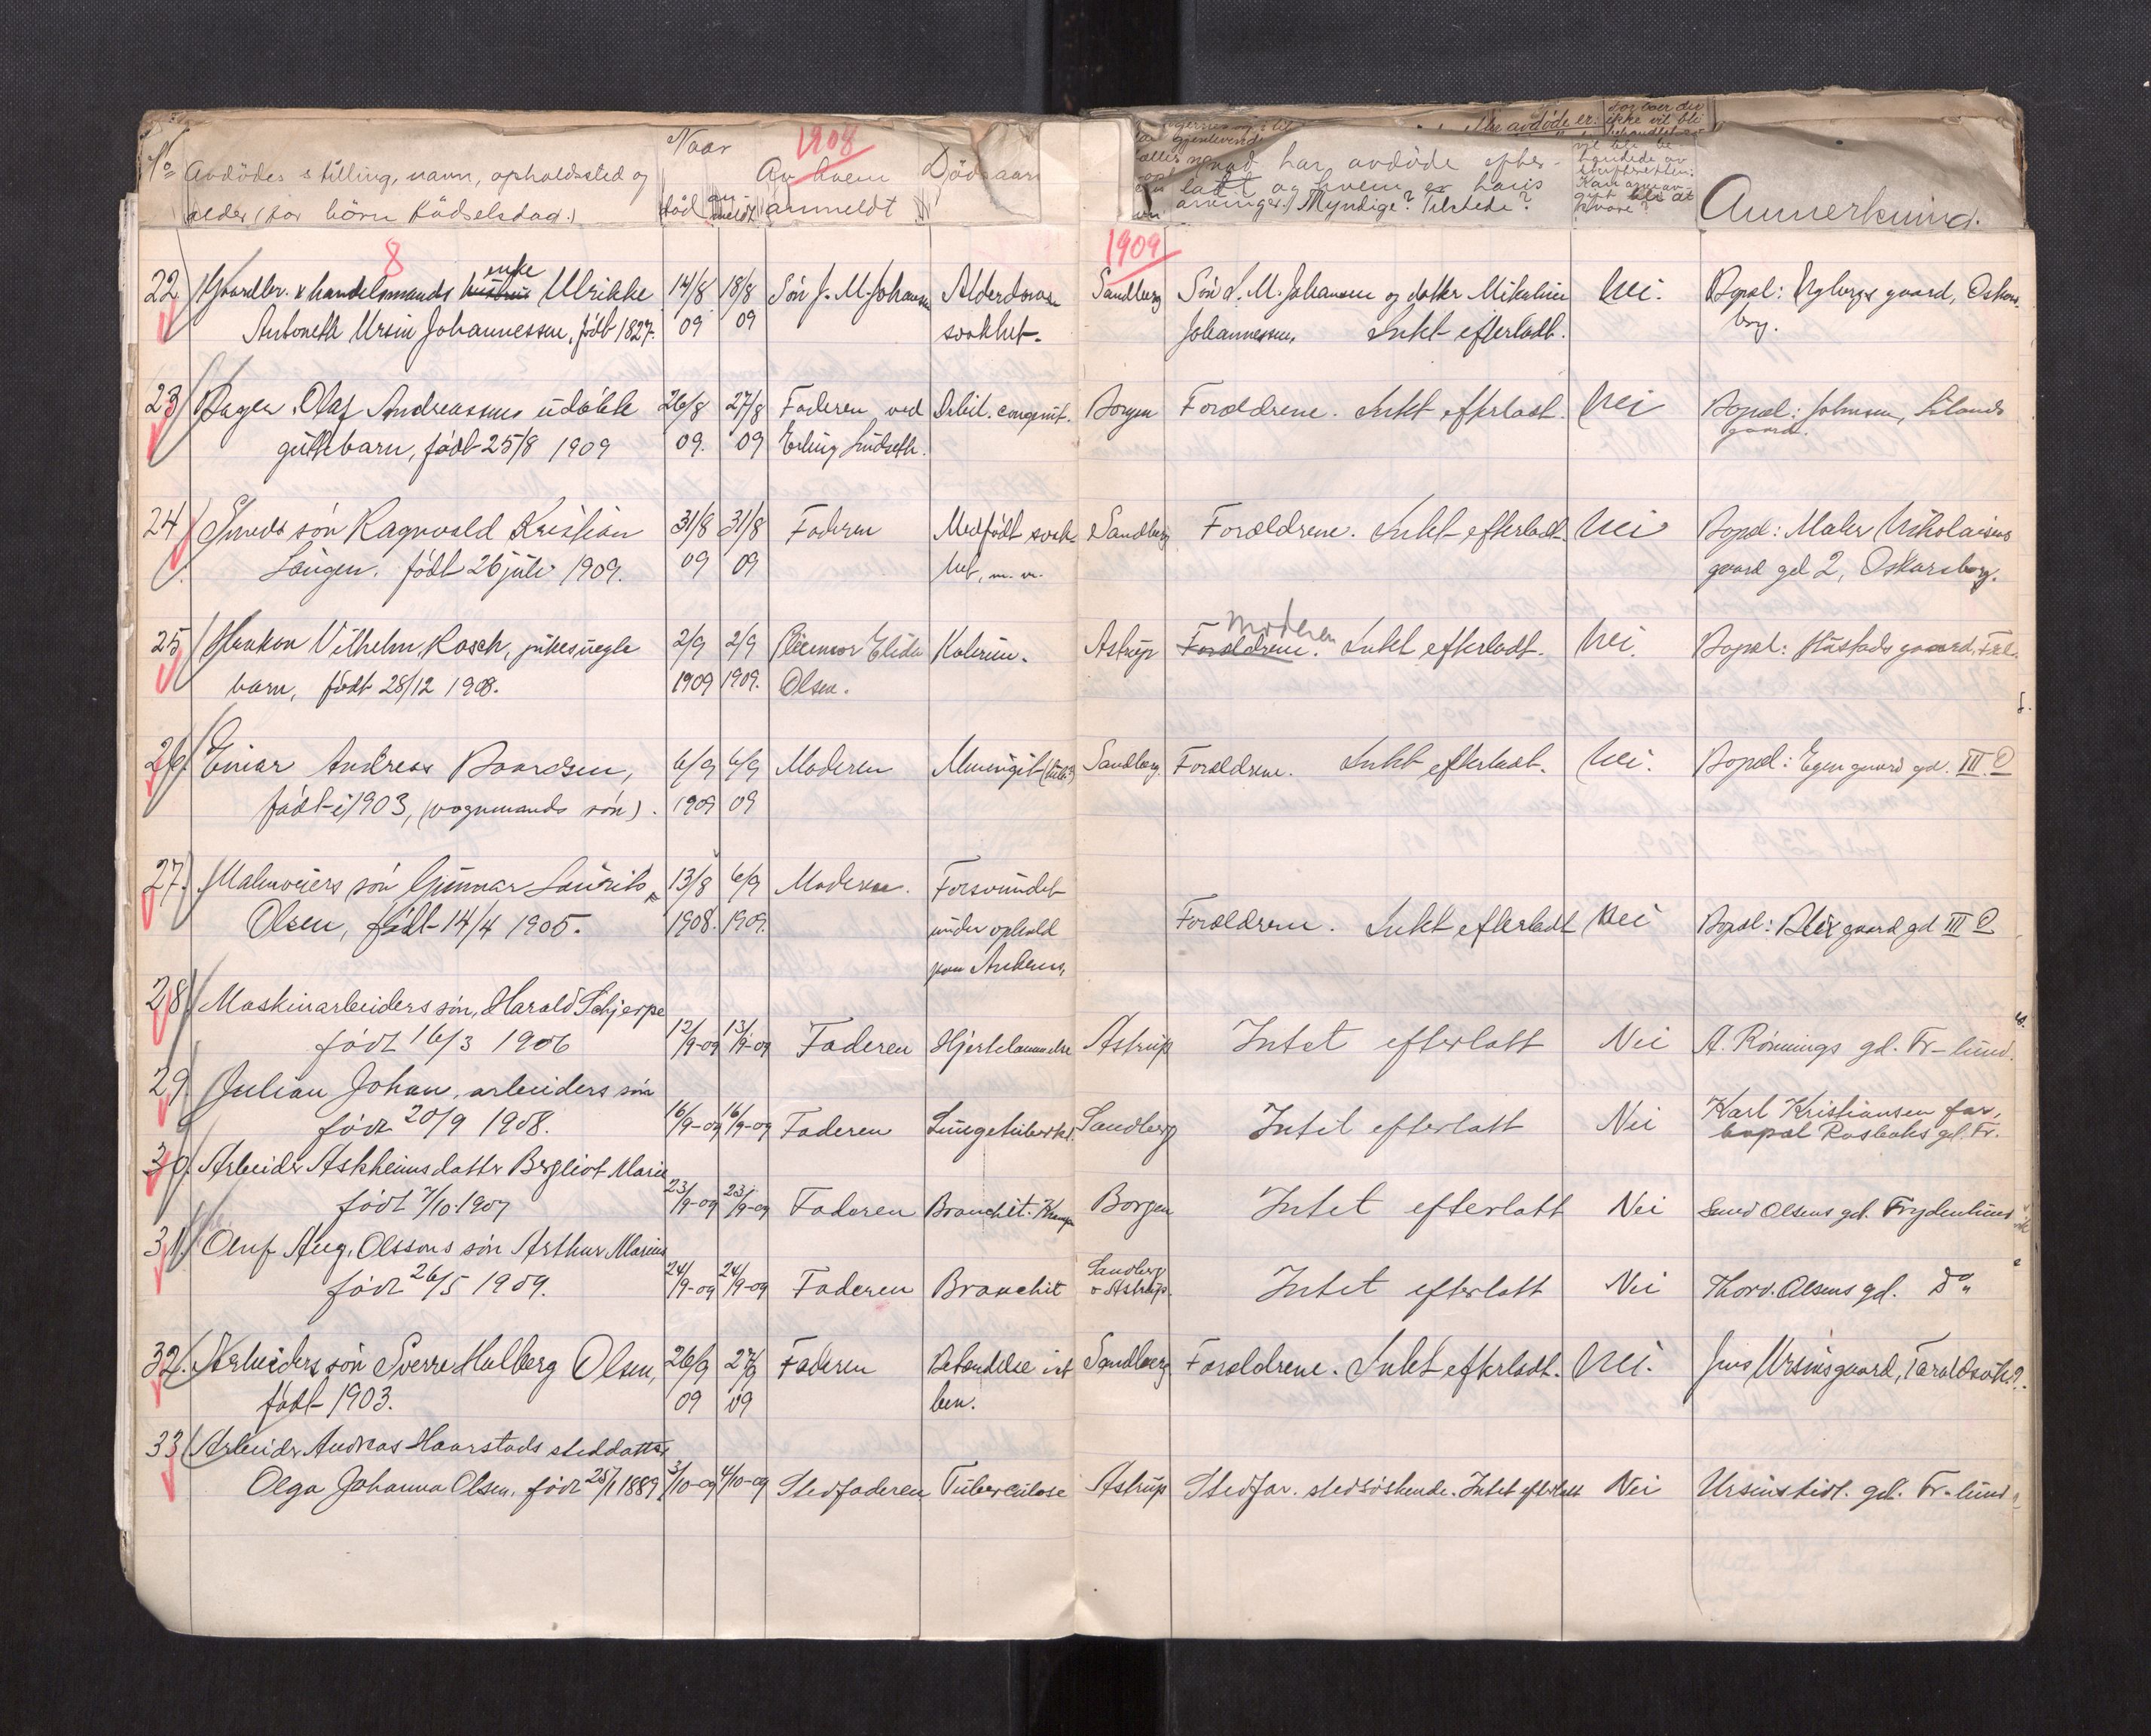 No Avdödes stilling, navn, opholdssted og
alder (for börn födselsdag.)
Naar
död
an
meldt
1908
Av hvem
anmeldt
Dödsaars
avdöde er:
ikke vil bli
har avdöde efter-
latt og hvem er hans
arvinger? Myndige? Tilstede?
Anmerkning.
8
1909
enke
22 Gaardbr. & handelsmands hustru Ulrikke 14/8 18/8 Sön J. M. Johansen Alderdoms Sandberg Sön J. M. Johansen og datter Mikaline Nei. Bopæl: Nybergs gaard, Oskars
Antonette Ursin Johannessen, födt 1827. 09 09 svakhet. Johannessen. Intet efterladt. borg.
23 Bager Olaf Andreassens udöbte 26/8 27/8 Faderen ved Debil. congenit. Borgen Forældrene. Intet efterladt. Nei Bopæl: Johnsen,
guttebarn, födt 25/8 1909 09. 09 Erling Lindseth. gaard.
24 Smeds sön Ragnvald Kristian 31/8 31/8 Faderen Medfödt svak- Sandberg Forældrene. Intet efterladt. Nei Bopæl: Maler Nikolaisens
Langen. födt 26 juli 1909. 09 09 het, m. m. gaard gd 2, Oskarsborg.
Moderen
25 Haakon Vilhelm Rasch, pikesuegte 2/9 2/9 Eleonor Elida Kolerine. Astrup Forældrene. Intet efterladt. Nei. Bopæl: Hustads gaard,
barn, födt 28/12 1908. 1909 1909. Olsen.
26 Einar Andreas Baardsen, 6/9 6/9 Moderen Meningit Sandberg. Forældrene. Intet efterladt. Nei. Bopæl: Egen gaard gd. III.
födt i 1903, (vognmands sön). 1909 09
27. Malmveiers sön Gunnar Laurits 13/8 6/9 Moderen. Forsvundet
Olsen, födt 14/4 1905. 1908. 1909. under ophold Forældrene. Intet efterladt Nei Bopæl: gaard gd III
paa Ankenes.
28. Maskinarbeiders sön, Harald Schjerpe
födt 16/3 1906 12/9-09 13/9-09 Faderen Hjertelammelse Astrup Intet efterlatt Nei A. Rönnings gd. Fr-lund.
29. Julian Johan, arbeiders sön
födt 20/9 1908. 16/9-09 16/9-09 Faderen Lungetuberkl. Sandberg Intet efterlatt Nei Karl Kristiansen far,
bopæl Rosbaks gd. Fr.
30. Arbeider Askheims datter Bergliot Marie
födt 7/10.1907 23/9-09 23/9-09 Faderen Bronchit. Borgen Intet efterlatt Nei Olsens gd. Frydenlund
31. Oluf Aug. Olssons sön Arthur Marius
födt 26/5 1909. 24/9-09 24/9-09 Faderen Bronchit Sandberg
o Astrup. Intet efterlatt Nei Thorv. Olsens gd. Do
32. Arbeiders sön Sverre Halberg Olsen, 26/9 27/9 Faderen Betændelse i et Sandberg Forældrene. Intet efterladt. Nei. Jens Ursinsgaard, Taraldsvik.
födt 1903. 09 09 ben.
33 Arbeider Andreas Haarstads steddatter
Olga Johanna Olsen, födt 25/1 1889 3/10-09 4/10-09 Stedfaderen Tuberculose Astrup Stedfar. stedsöskende. Intet efterlatt Nei Ursins gd. Fr-lund